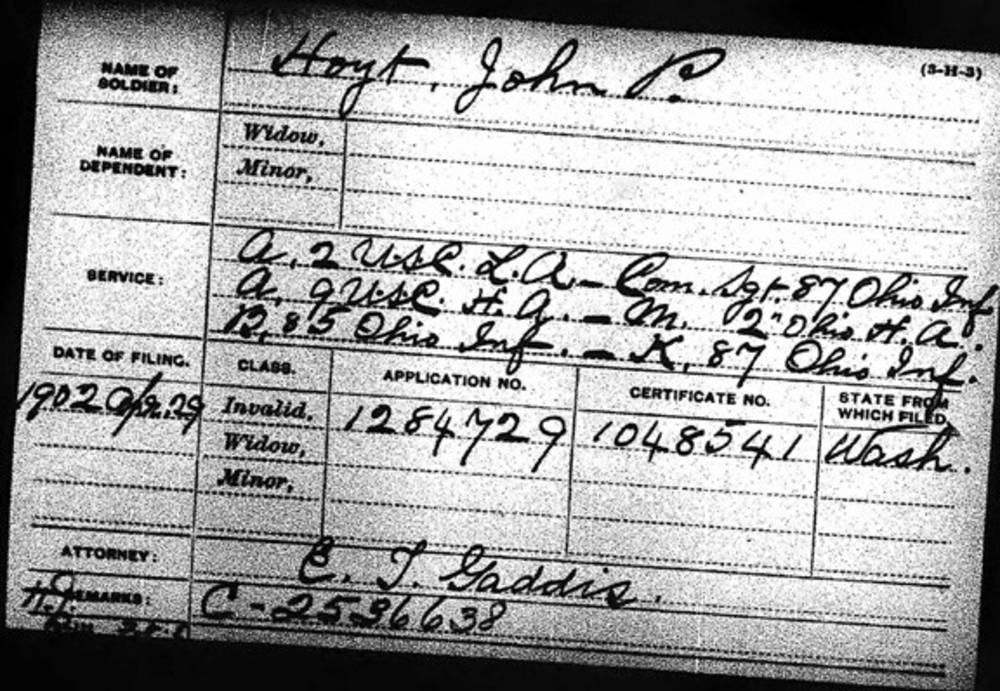 Hoyt, John P.
(3-H-3)
NAME OF
SOLDIER:
NAME OF
DEPENDENT:
Widow,
Minor,
SERVICE:
A, 2 U.S.C. L.A. – Com. Sgt. 87 Ohio Inf
A, 9 U.S.C. H.A. – M. 2" Ohio H.A.
B, 85 Ohio Inf. – K, 87 Ohio Inf.
DATE OF FILING.
CLASS.
APPLICATION NO.
CERTIFICATE NO.
STATE FROM
WHICH FILED.
1902 Apr. 29
Invalid,
1284729
1048541
Wash.
Widow,
Minor,
ATTORNEY:
E. T. Gaddis.
REMARKS:
C-2536638